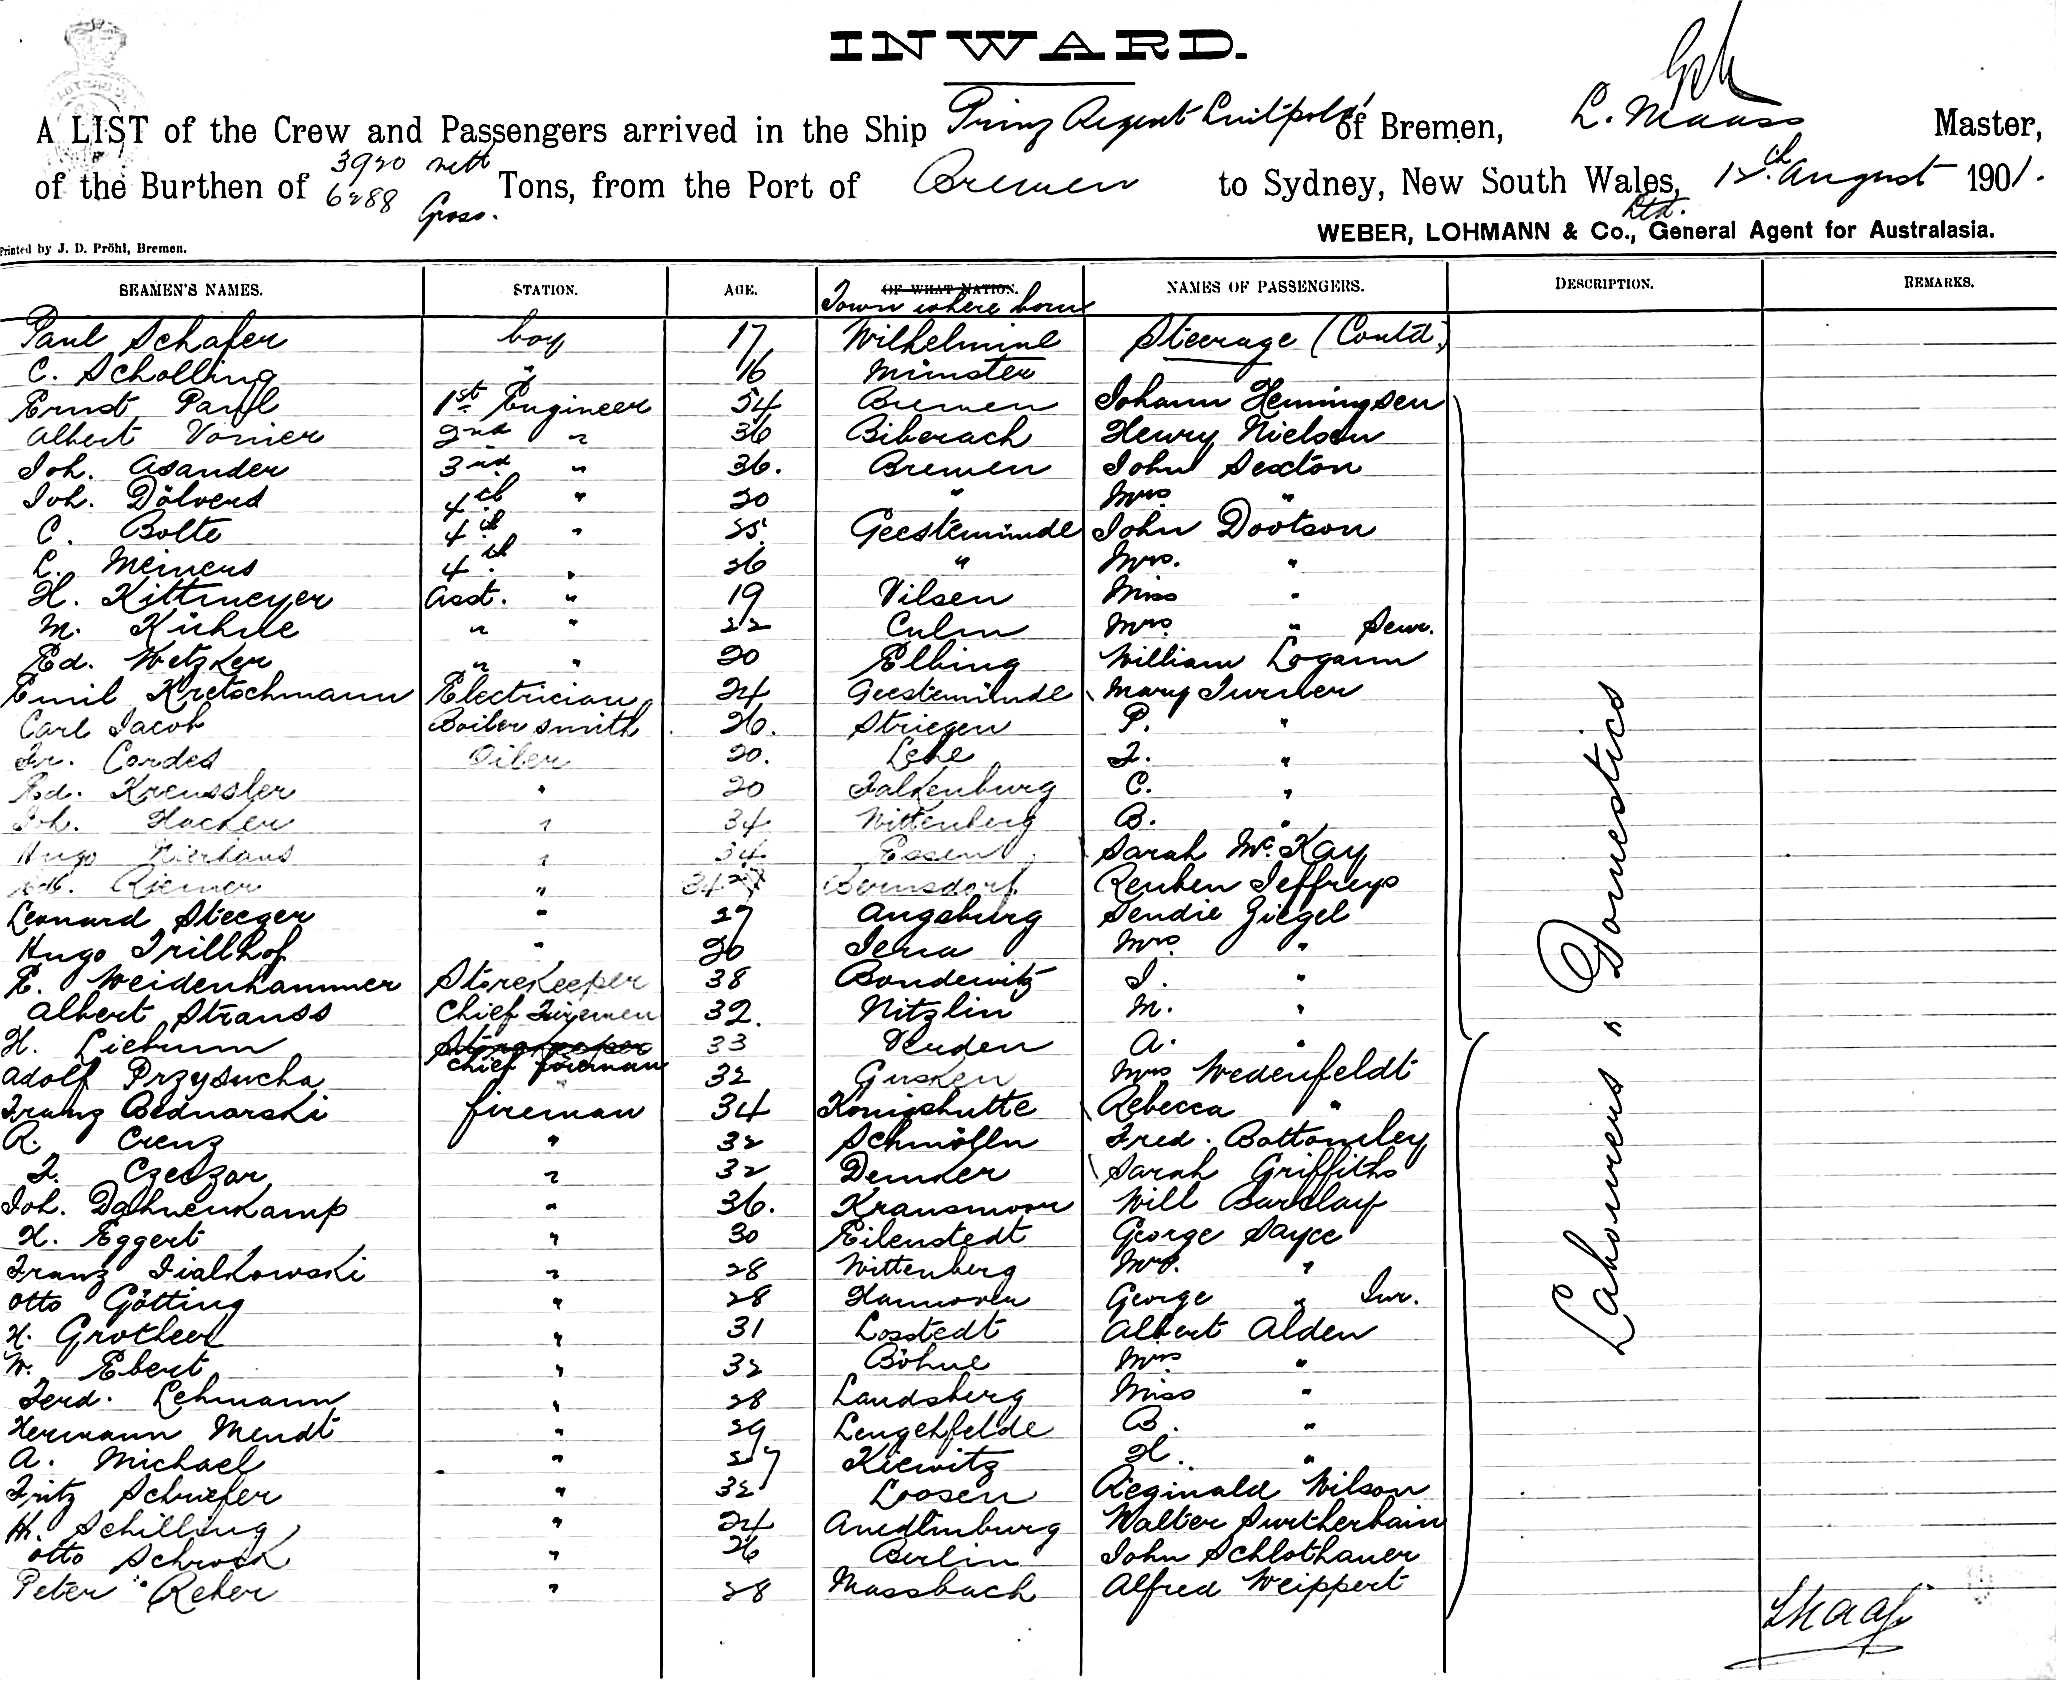 INWARD.
A LIST of the Crew and Passengers arrived in the Ship Prinz Regent Luitpold of Bremen, L. Maass Master,
of the Burthen of 3920 nett 6288 Gross. Tons, from the Port of Bremen to Sydney, New South Wales, August 1901.
WEBER, LOHMANN & Co., Ltd. General Agent for Australasia.
Printed by J. D. Pröhl, Bremen.
SEAMEN'S NAMES. STATION. AGE. OF WHAT NATION. Town where born NAMES OF PASSENGERS. DESCRIPTION. REMARKS.
Paul Schafer boy 17 Wilhelmine Steerage (Contd)
C. Scholling " 16 Münster
Ernst Paul 1st Engineer 54 Bremen Johann Henningsen
Albert Vorrier 2nd " 36 Biberach Henry Nielson
Joh. Asander 3rd " 36. Bremen John Sexton
Joh. Dölvers 4th " 20 " Mrs "
C. Bolte 4th " 25. Geestemünde John Dootson
L. Meiners 4th " 26 " Mrs. "
H. Kittmeyer Asst. " 19 Vilsen Miss "
M. Kühne " " 22 Culm Mrs. " Senr.
Ed. Wetzker " " 20 Elbing William Logann
Emil Kretschmann Electrician 24 Geestemünde Mary Turner
Carl Jacob Boiler smith 26. Striegen P. "
Fr. Cordes Oiler 20. Lehe F. "
Ed. Kreussler " 20 Falkenburg C. "
Joh. Hacker " 34 Wittenberg B. "
Hugo Nierhaus " 34 Essen Sarah McKay
Riemer " Bernsdorf Reuben Jeffreys
Leonard Steeger " 27 Augsburg Sendie Ziegel
Hugo Trillhof " 20 Jena Mrs "
E. Weidenhammer Storekeeper 38 Bondewitz I. "
Albert Strauss Chief Firemen 32. Nitzlin M. "
H. Liebum Storekeeper Chief fireman 33 Verden A. "
Adolf Przysucha " 32 Gusken Mrs Wedenfeldt
Franz Bednarski fireman 34 Königshutte Rebecca "
R. Crenz " 32 Schmölln Fred. Bottomley
F. Czeszar " 32 Demker Sarah Griffiths
Joh. Dahnenkamp " 36. Kransmoor Will Barclay
H. Eggert " 30 Eilenstedt George Sayce
Franz Fialkowski " 28 Wittenberg Mrs. "
Otto Götting " 28 Hannover George " Jnr.
H. Grotheer " 31 Losstedt Albert Alden
W. Ebert " 32 Böhne Mrs "
Ferd. Lehmann " 28 Landsberg Miss "
Hermann Mendt " 29 Lengehfelde B. "
A. Michael " 27 Kiewitz H. "
Fritz Schriefer " 32 Loosen Reginald Wilson
H. Schilling " 24 Quedlinburg Walter Surtherbain
Otto Schrock " 26 Berlin John Schlothauer
Peter Reher " 28 Massbach Alfred Weippert
Labourers " Domestics
LMaass